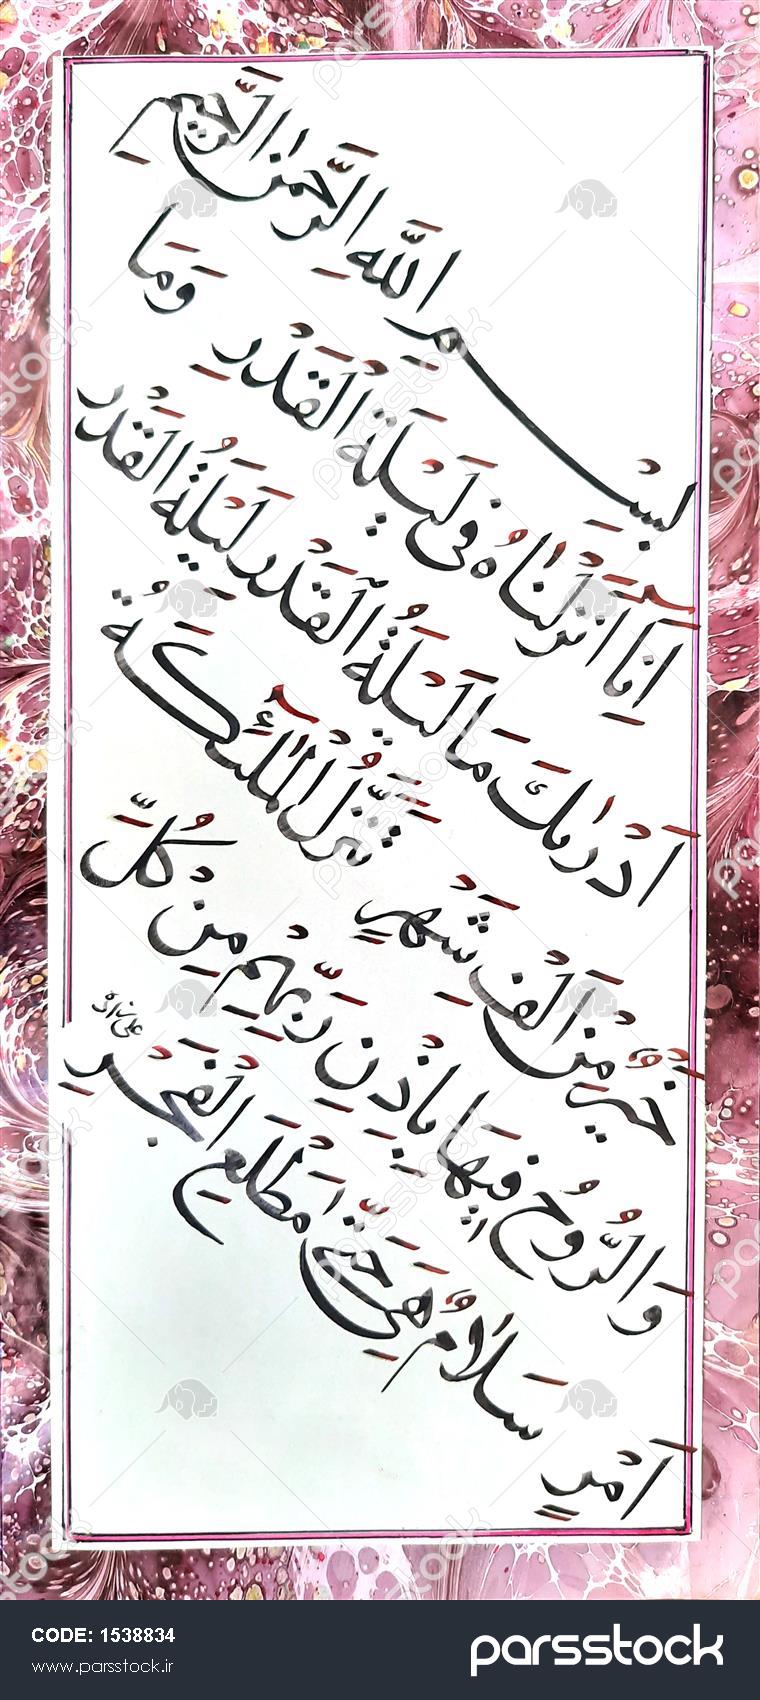 بِسْمِ اللَّهِ الرَّحْمٰنِ الرَّحِيمِ
اِنَّآ اَنْزَلْنَاهُ فِى لَيْلَةِ الْقَدْرِ وَمَا
اَدْرٰىكَ مَا لَيْلَةُ الْقَدْرِ لَيْلَةُ الْقَدْرِ
خَيْرٌ مِنْ اَلْفِ شَهْرٍ تَنَزَّلُ الْمَلٰٓئِكَةُ
وَالرُّوحُ فِيهَا بِاِذْنِ رَبِّهِمْ مِنْ كُلِّ
اَمْرٍ سَلَامٌ هِىَ حَتّٰى مَطْلَعِ الْفَجْرِ
CODE: 1538834
www.parsstock.ir
parsstock